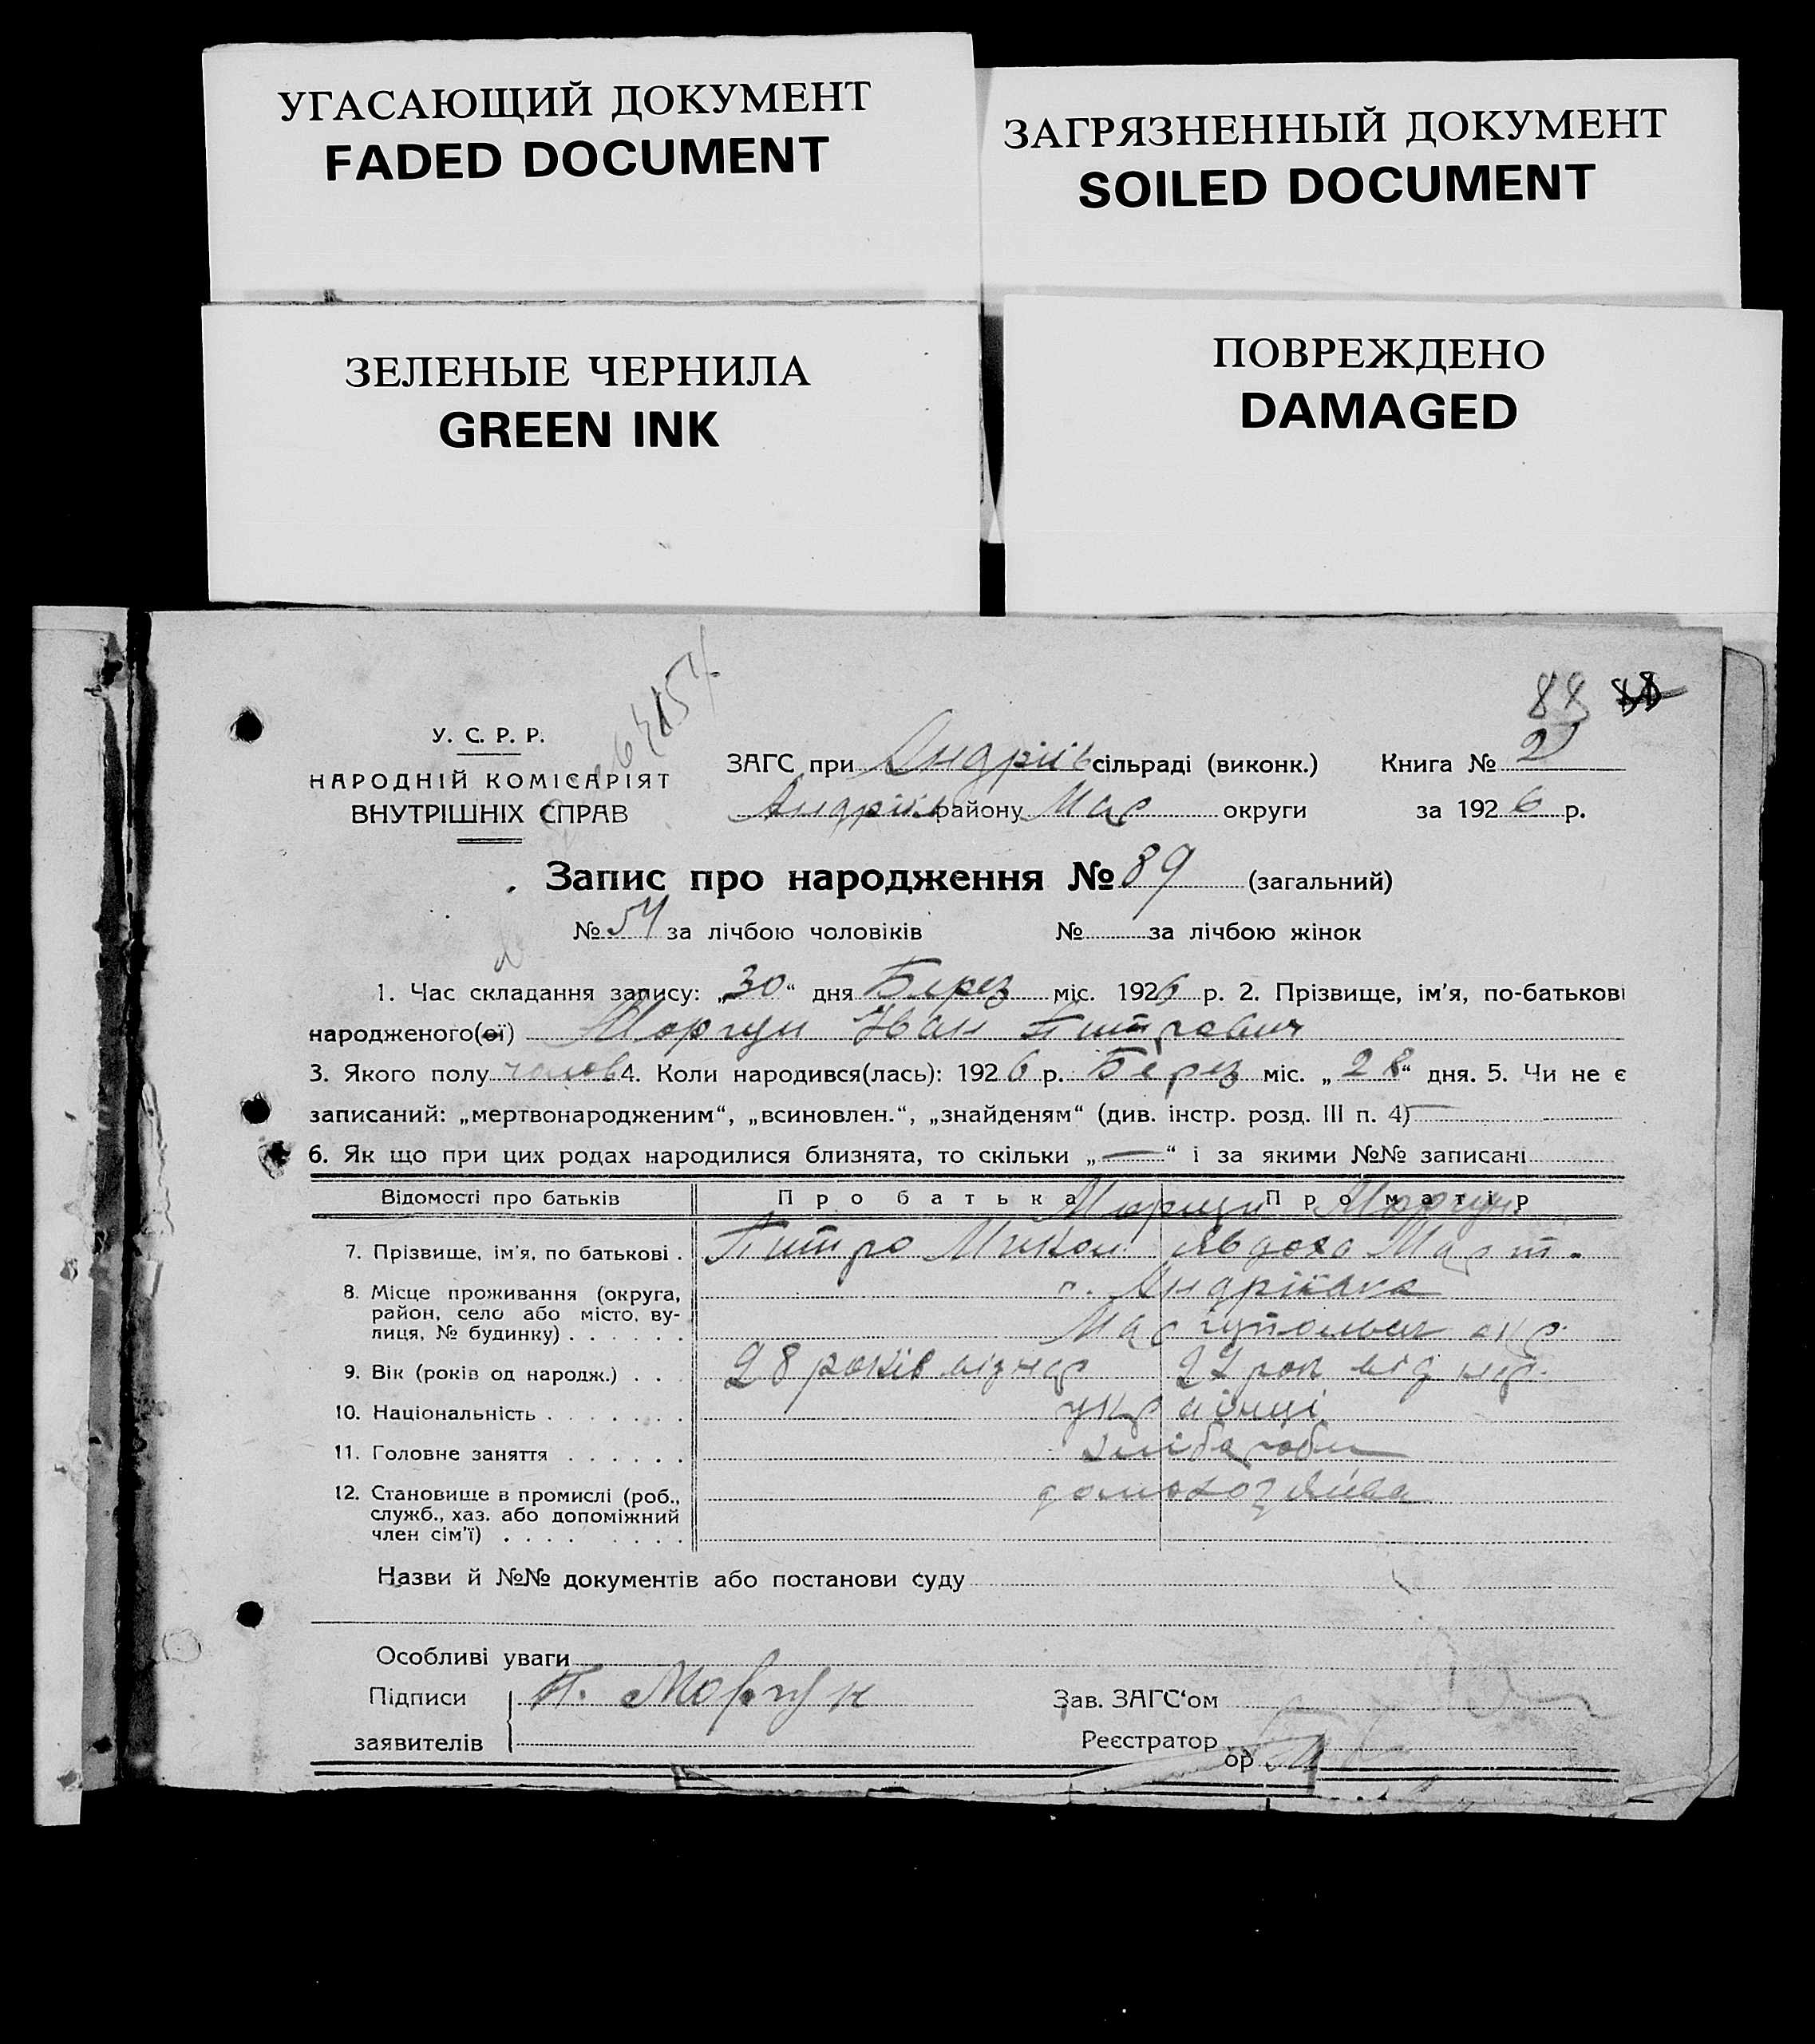 УГАСАЮЩИЙ ДОКУМЕНТ
FADED DOCUMENT
ЗАГРЯЗНЕННЫЙ ДОКУМЕНТ
SOILED DOCUMENT
ЗЕЛЕНЫЕ ЧЕРНИЛА
GREEN INK
ПОВРЕЖДЕНО
DAMAGED
88
У. С. Р. Р.
НАРОДНІЙ КОМІСАРІЯТ
ВНУТРІШНІХ СПРАВ
ЗАГС при Андріїв сільраді (виконк.) Книга № 2
Андріїв району Мар округи за 1926 р.
Запис про народження № 89 (загальний)
№ 54 за лічбою чоловіків № за лічбою жінок
1. Час складання запису: „30“ дня Берез міс. 1926 р. 2. Прізвище, ім'я, по-батькові
народженого(ої) Моргун Іван Питрович
3. Якого полу чолов 4. Коли народився(лась): 1926 р. Берез міс. „28“ дня. 5. Чи не є
записаний: „мертвонародженим“, „всиновлен.“, „знайденям“ (див. інстр. розд. III п. 4) —
6. Як що при цих родах народилися близнята, то скільки „—“ і за якими №№ записані
Відомості про батьків Про батька Про матір
Моргун Моргун
7. Прізвище, ім'я, по батькові . Питро Микол Явдоха Март.
8. Місце проживання (округа, с. Андріївка
район, село або місто, ву-
лиця, № будинку) . . . . . . Маріупольск окр.
9. Вік (років од народж.) . . . 28 років від нар 22 рок від нар.
10. Національність . . . . . . . українці
11. Головне заняття . . . . . . хліборобы
12. Становище в промислі (роб., домохозяйва
служб., хаз. або допоміжний
член сім'ї) . . . . . . . .
Назви й №№ документів або постанови суду
Особливі уваги
Підписи П. Моргун Зав. ЗАГС‘ом
заявителів Реєстратор
ор